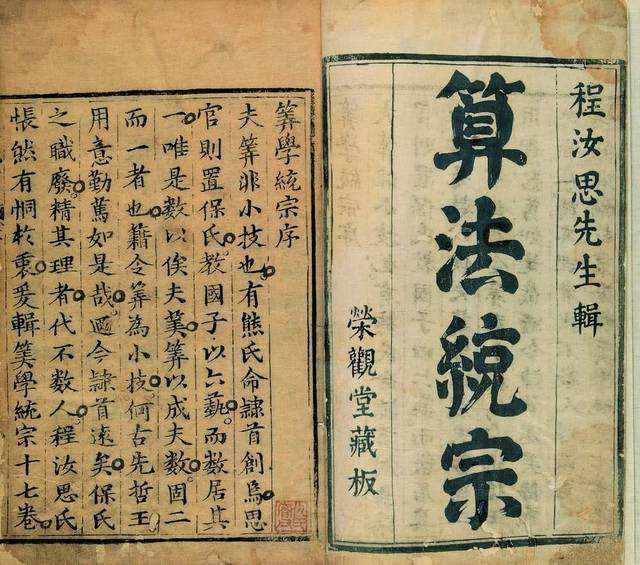 程汝思先生輯
算法統宗
榮觀堂藏板
筭學統宗序
夫筭非小技也有熊氏命隷首創焉
官則置保氏教國子以六藝而數居其
一唯是數以俟夫筭筭以成夫數固二
而一者也籍令筭為小技何古先哲王
用意勤篤如是哉迺今隷首遠矣保氏
之職廢精其理者代不數人程汝思氏
悵然有恫於衷爰輯筭學統宗十七卷